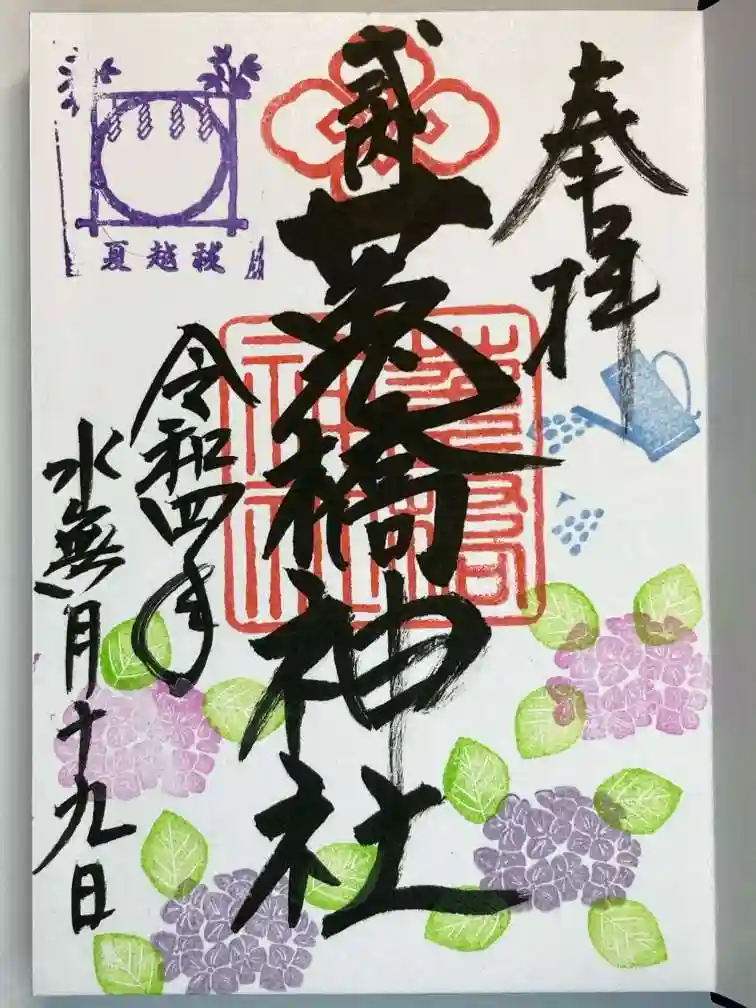 奉拝
式内
橋神社
令和四年
水無月十九日
夏越祓